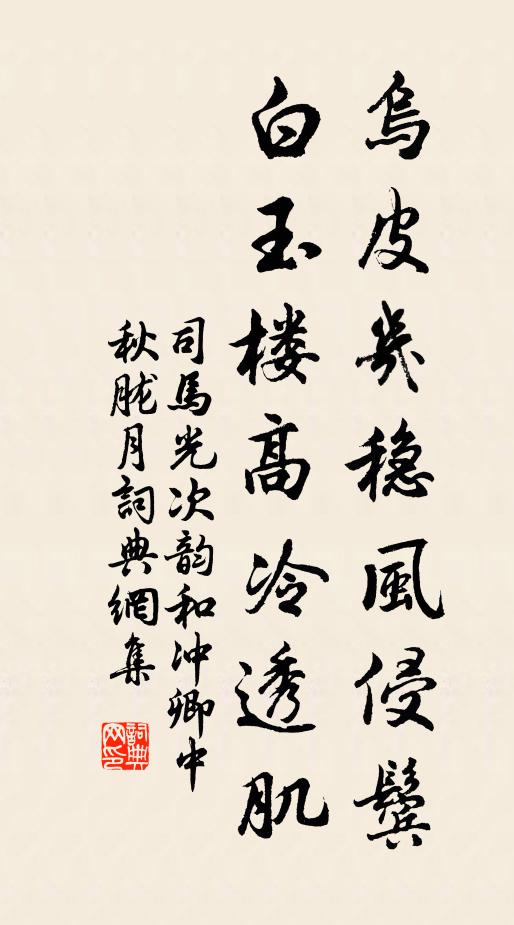 烏皮幾穩風侵鬓
白玉楼高冷透肌
司馬光次韵和冲卿中
秋胧月詞典網集
詞典网印